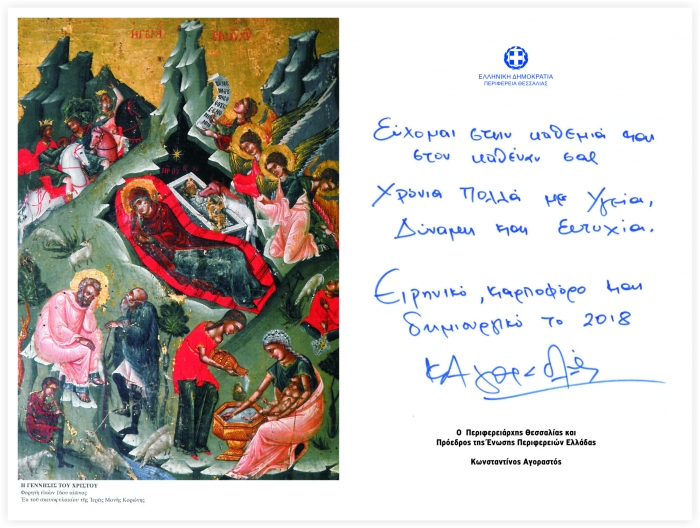 Η ΓΕΝΝΗΣΙΣ ΤΟΥ ΧΡΙΣΤΟΥ
Φορητή εἰκών 16ου αἰῶνος
Ἐκ τοῦ σκευοφυλακίου τῆς Ἱερᾶς Μονῆς Κορώνης
ΕΛΛΗΝΙΚΗ ΔΗΜΟΚΡΑΤΙΑ
ΠΕΡΙΦΕΡΕΙΑ ΘΕΣΣΑΛΙΑΣ
Εύχομαι στην καθεμιά και
στον καθέναν σας
Χρόνια Πολλά με Υγεία,
Δύναμη και Ευτυχία.
Ειρηνικό, καρποφόρο και
δημιουργικό το 2018
Ο Περιφερειάρχης Θεσσαλίας και
Πρόεδρος της Ένωσης Περιφερειών Ελλάδας
Κωνσταντίνος Αγοραστός